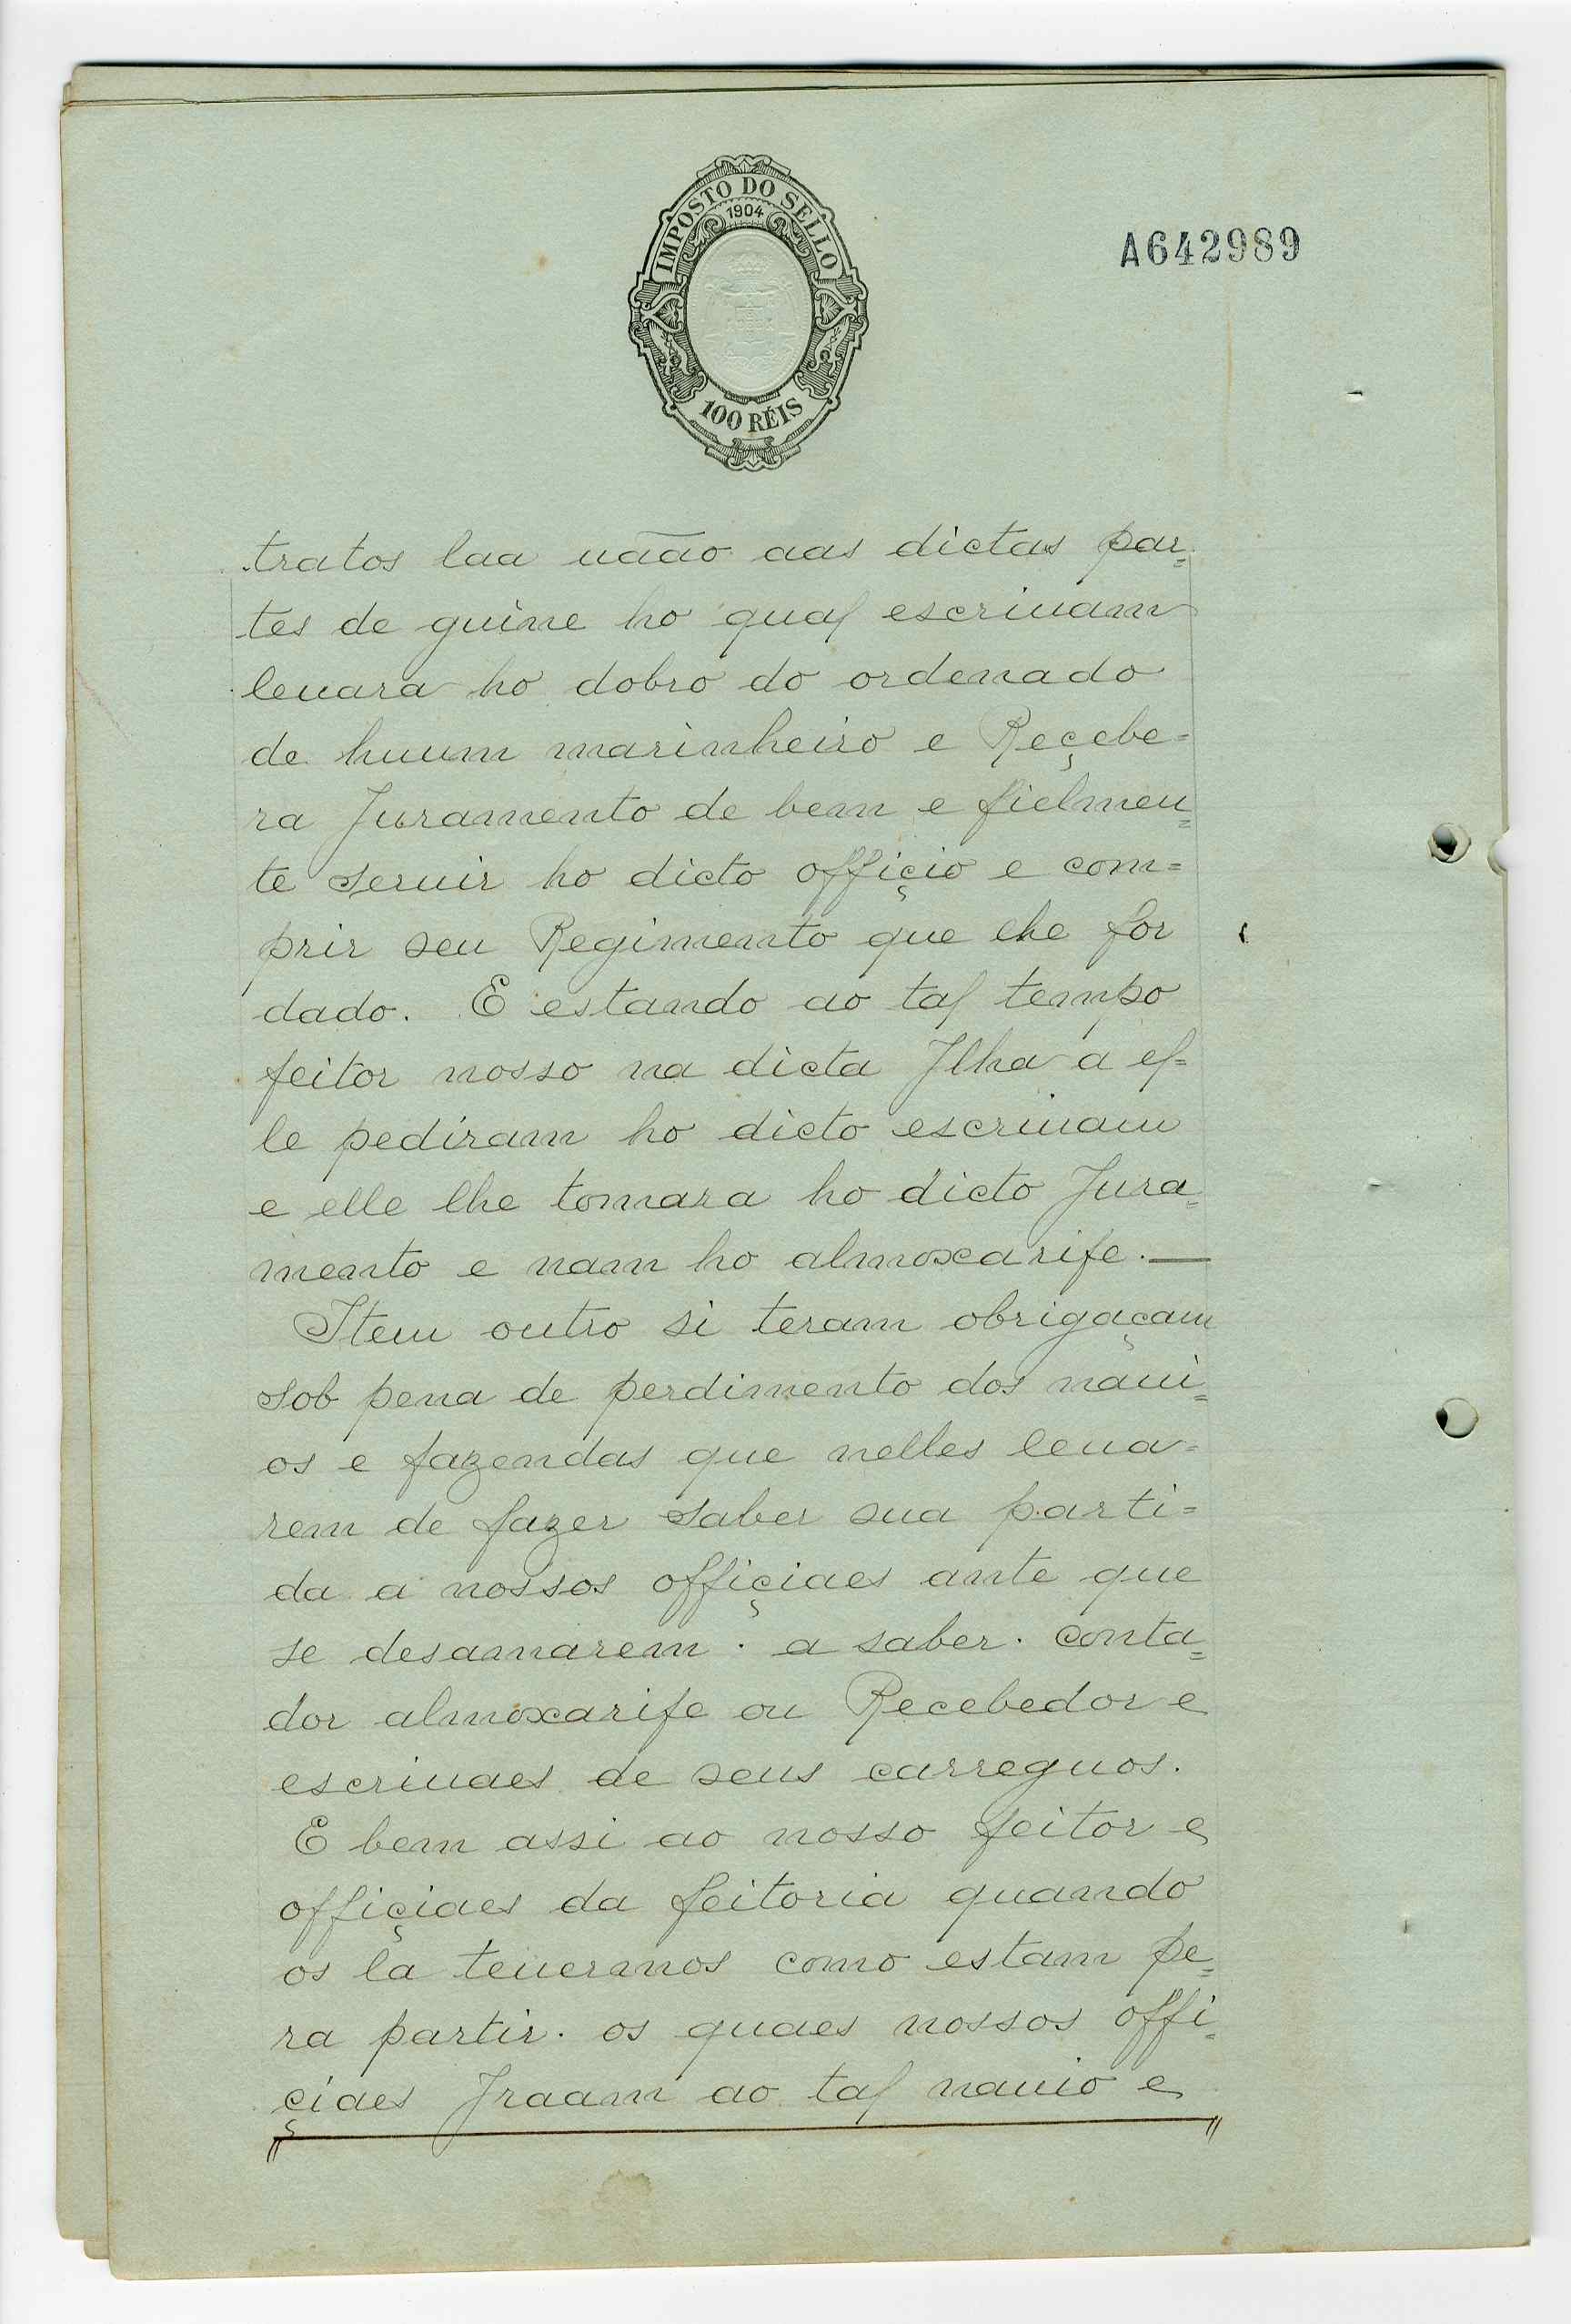 IMPOSTO DO SELLO
1904
100 RÉIS
A642989
tratos laa uãão aas dictas par=
tes de guine ho qual escriuam
leuara ho dobro do ordenado
de huum marinheiro e Reçebe=
ra Juramento de bem e fielmen=
te seruir ho dicto offiçio e com=
prir seu Regimento que lhe for
dado. E estando ao tal tempo
feitor nosso na dicta Jlha a el=
le pediram ho dicto escriuam
e elle lhe tomara ho dicto Jura=
mento e nam ho almoxarife.—
Item outro si teram obrigaçam
sob pena de perdimento dos naui=
os e fazendas que nelles leua=
rem de fazer saber sua parti=
da a nossos offiçiaes ante que
se desamarem . a saber . conta=
dor almoxarife ou Recebedor e
escriuaes de seus carreguos.
E bem assi ao nosso feitor e
offiçiaes da feitoria quando
os la teuermos como estam pe=
ra partir . os quaes nossos offi=
çiaes Jraam ao tal nauio e